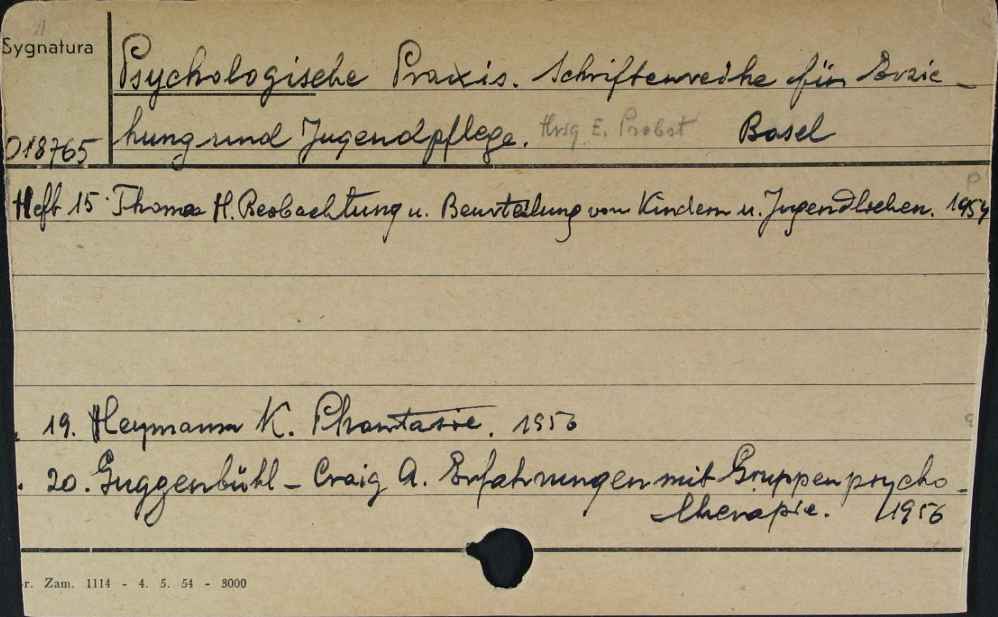 Sygnatura
Psychologische Praxis. Schriftenreihe für Erzie-
018765 hung und Jugendpflege. Hrsg E. Probst Basel
Heft 15. Thomae H. Beobachtung u. Beurteilung von Kindern u. Jugendlichen. 1954
19. Heymann K. Phantasie. 1956
20. Guggenbühl - Craig A. Erfahrungen mit Gruppenpsycho-
therapie. 1956
r. Zam. 1114 - 4. 5. 54 - 3000